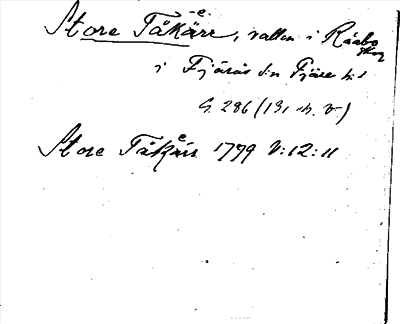 Store Tåkärr, vallen i Råabo skog
i Fjärås sn Fjäre hd
G. 286 (131 m. ö. v)
Store Tåkärr 1799 V:12:11